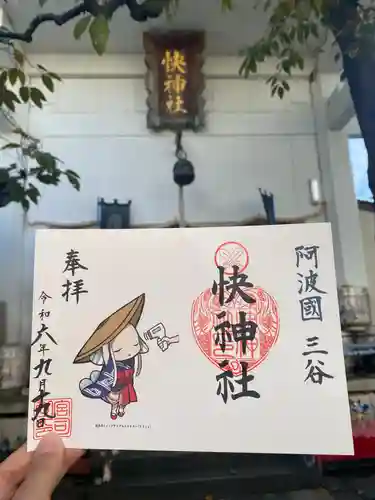 快神社
阿波國 三谷
快神社
奉拝
令和六年九月十九日
宮司